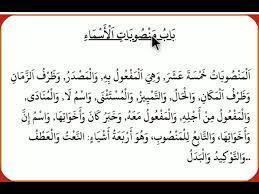 بَابُ مَنْصُوبَاتِ اَلْأَسْمَاءِ
اَلْمَنْصُوبَاتُ خَمْسَةَ عَشَرَ، وَهِيَ اَلْمَفْعُولُ بِهِ، وَالْمَصْدَرُ، وَظَرْفُ اَلزَّمَانِ
وَظَرْفُ اَلْمَكَانِ، وَالْحَالُ، وَالتَّمْيِيزُ، وَالْمُسْتَثْنَى، وَاسْمُ لَا، وَالْمُنَادَى،
وَالْمَفْعُولُ مِنْ أَجْلِهِ، وَالْمَفْعُولُ مَعَهُ، وَخَبَرُ كَانَ وَأَخَوَاتِهَا، وَاسْمُ إِنَّ
وَأَخَوَاتِهَا، وَالتَّابِعُ لِلْمَنْصُوبِ، وَهُوَ أَرْبَعَةُ أَشْيَاءَ: النَّعْتُ وَالْعَطْفُ
وَالتَّوْكِيدُ وَالْبَدَلُ..